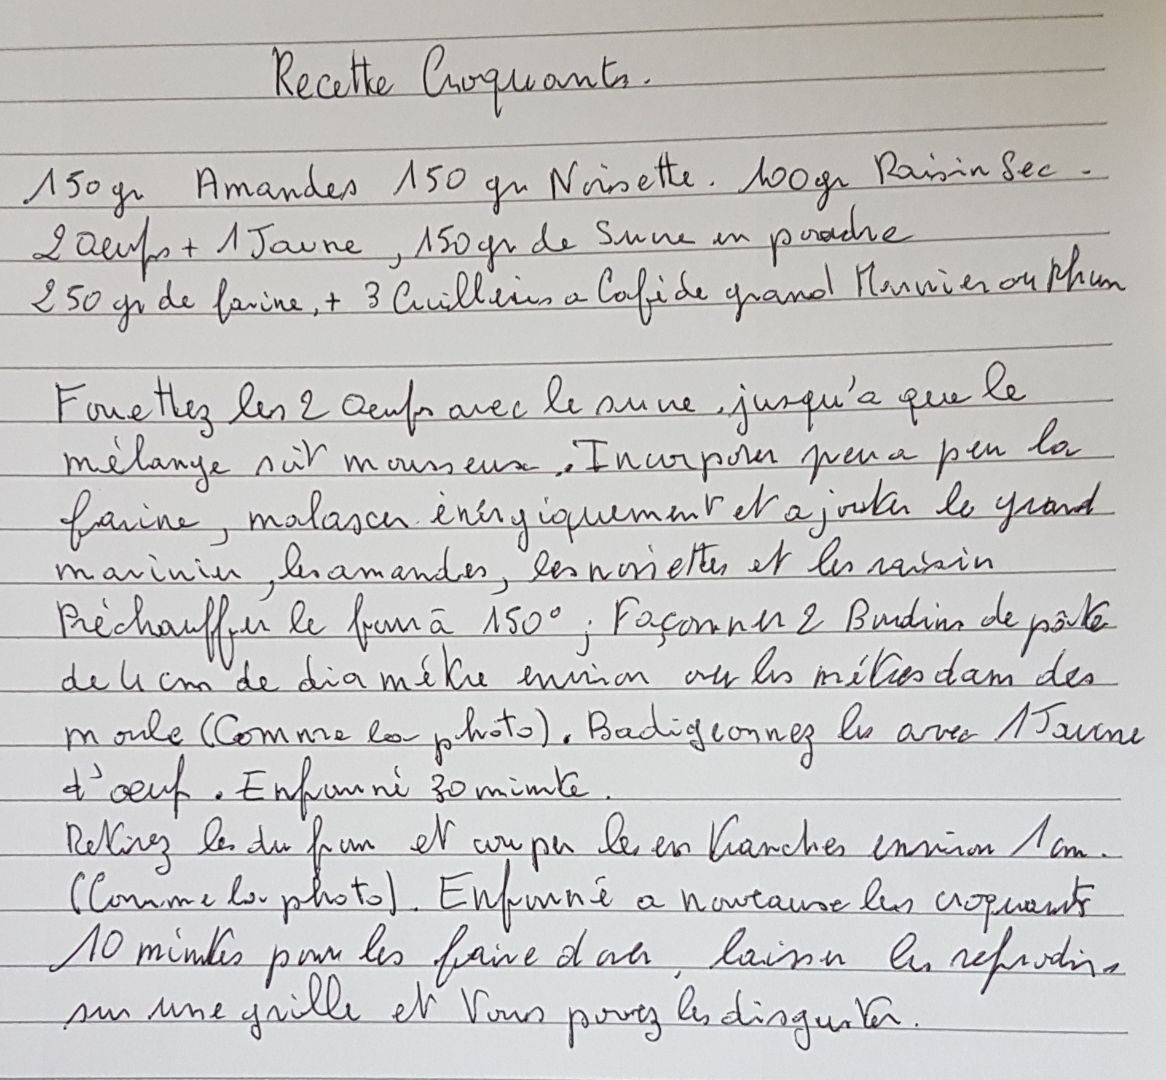 Recette Croquants.
150gr Amandes 150 gr Noisette. 100gr Raisin Sec.
2 oeufs + 1 Jaune, 150gr de Sucre en poudre
250 gr de farine, + 3 Cuillères a Café de grand Marnier ou Rhum
Fouettez les 2 Oeufs avec le sucre, jusqu'a que le
mélange soit mousseux. Incorporer peu a peu la
farine, malaxer énergiquement et ajouter le grand
marinier, les amandes, les noisettes et les raisin
Préchauffer le four à 150°; Façonner 2 Boudins de pâte
de 4 cm de diamètre environ ou les mètres dans des
moule (Comme la photo). Badigeonnez les avec 1 Jaune
d'oeuf. Enfourné 30 minute.
Retirez les du four et couper les en tranches environ 1 cm.
(Comme la photo). Enfourné a nouveaux les croquants
10 minutes pour les faire dorer, laisser les refroidir
sur une grille et Vous pouvez les disguster.